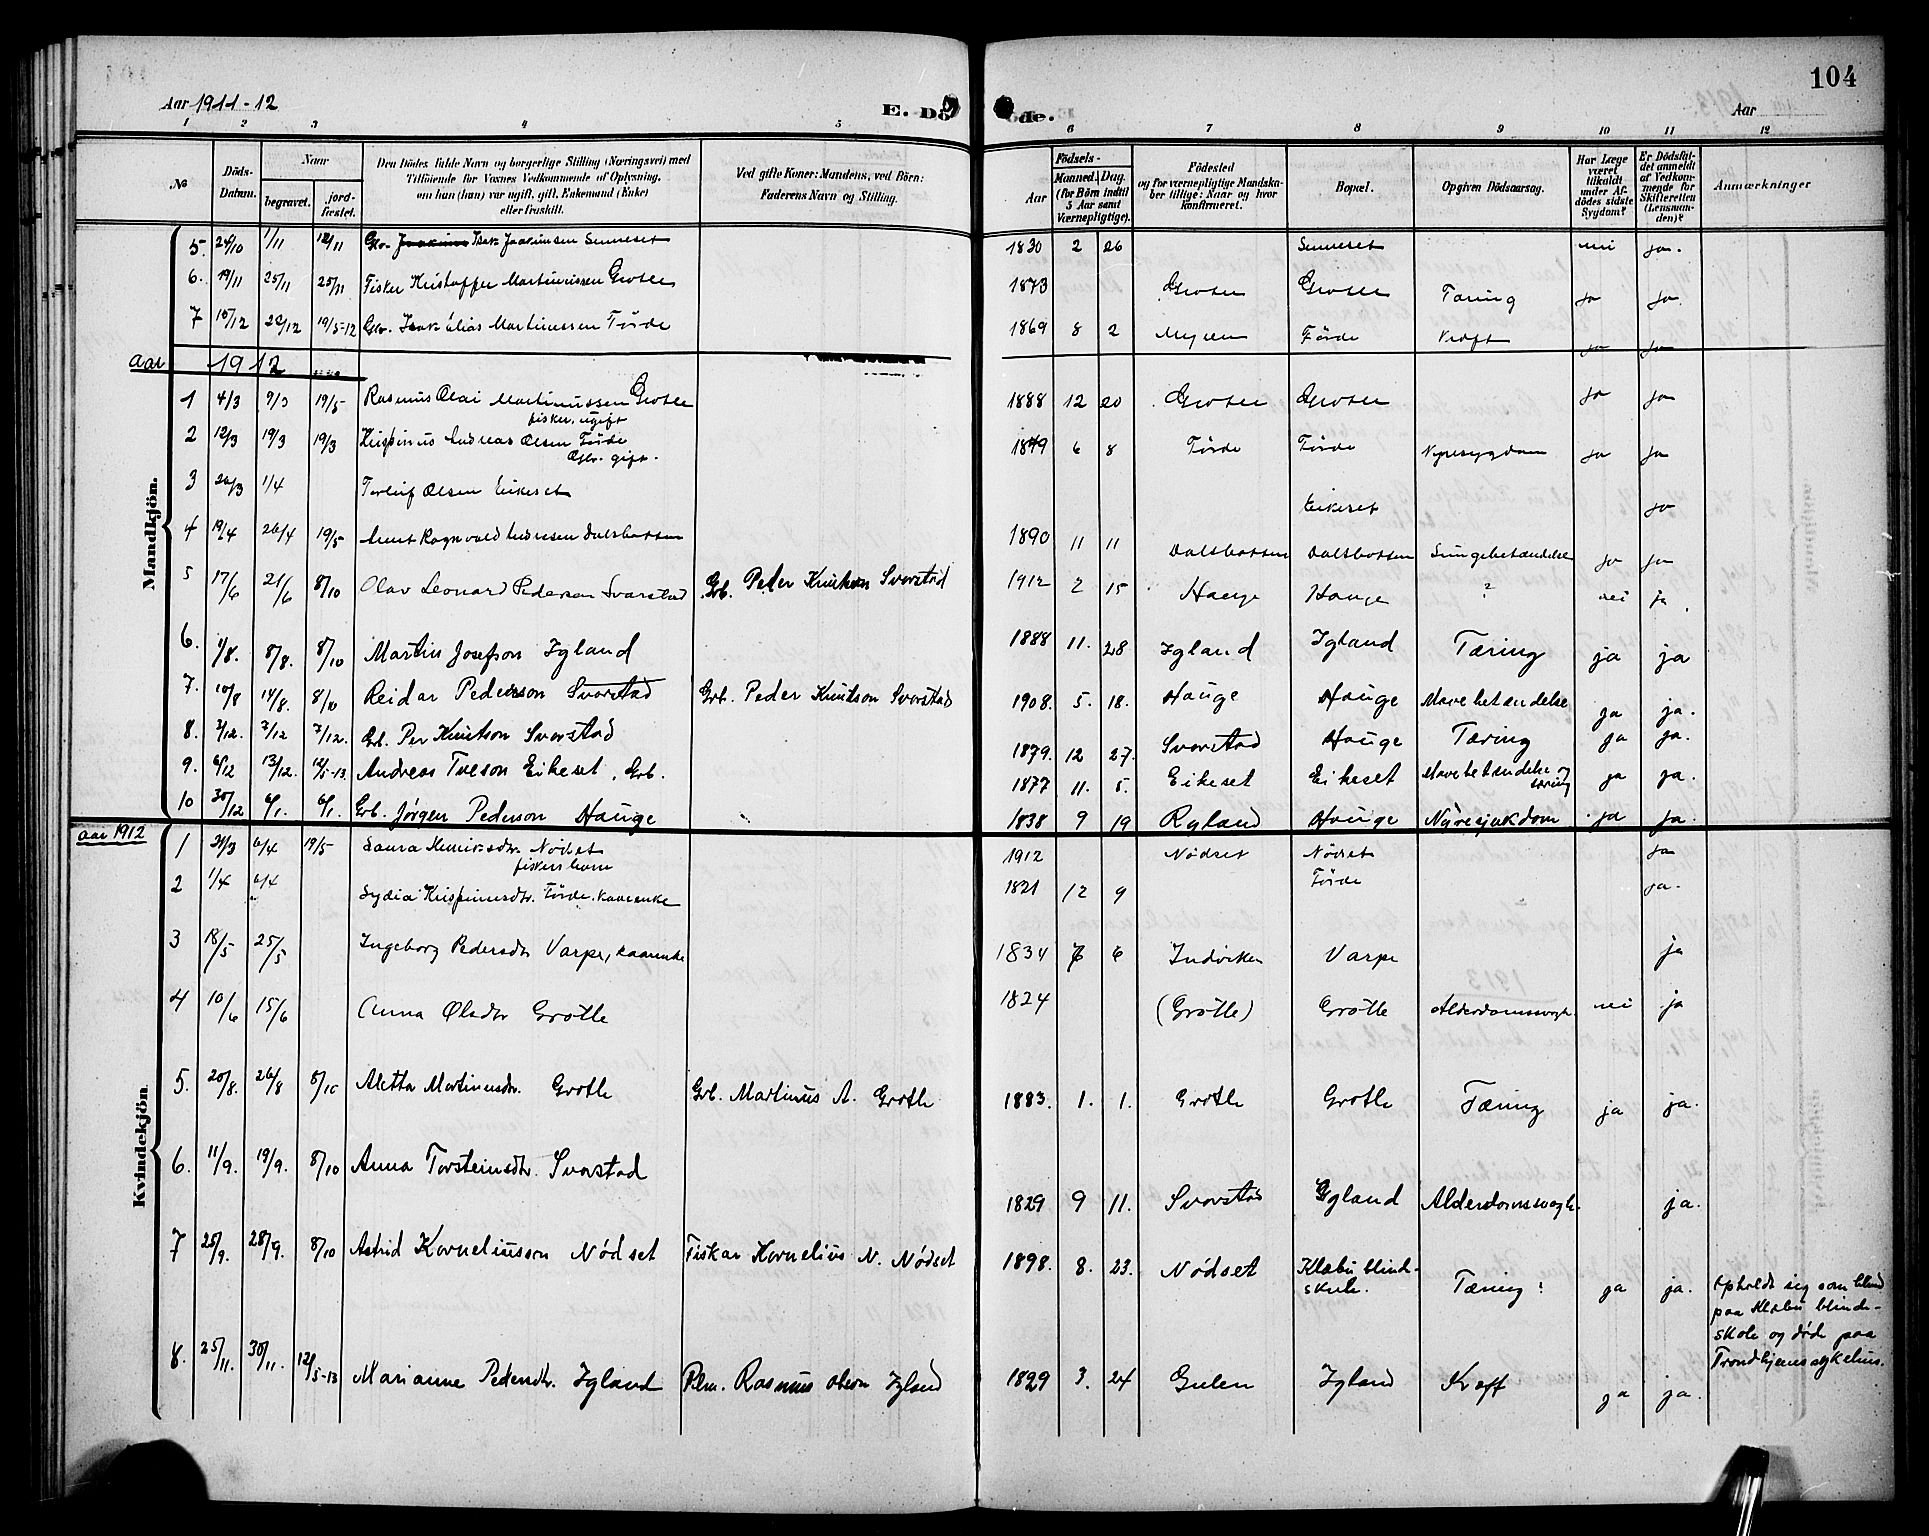 104
Aar 1911-12
E. Døde.
Aar
1 2 3 4 5 6 7 8 9 10 11 12
No
Döds-Datum.
Naar
begravet.
jordfæstet.
Den Dödes fulde Navn og borgerlige Stilling (Næringsvei) med
Tilföiende for Voxnes Vedkommende af Oplysning,
om han (hun) var ugift, gift, Enkemand (Enke)
eller fraskilt.
Ved gifte Koner: Mandens, ved Börn:
Faderens Navn og Stilling.
Födsels-
Aar
Maaned. Dag.
(for Börn indtil
5 Aar samt
Værnepligtige).
Födested
og for værnepligtige Mandskaber tillige: Naar og hvor
konfirmeret.
Bopæl.
Opgiven Dödsaarsag.
Har Læge
været
tilkaldt
under Afdödes sidste
Sygdom?
Er Dödsfaldet anmeldt
af Vedkommende for
Skifteretten
(Lensmanden)?
Anmærkninger
Mandkjön.
5. 24/10 1/11 12/11 Gbr. Isak Joakimsen Senneset 1830 2 26 Senneset nei ja.
6. 19/11 25/11 25/11 Fisker Kristoffer Martinussen Grotle 1873 Grotle Grotle Tæring ja ja.
7 15/12 20/12 19/5-12 Gbr. Isak Elias Martinussen Förde 1869 8 2 Myren Förde Kræft ja ja
aar 1912
1 4/3 9/3 19/5- Rasmus Olai Martinussen Grotle 1888 12 20 Grotle Grotle ja ja
fisker, ugift
2 12/3 19/3 19/3 Krispinus Andreas Olsen Förde 1849 6 8 Förde Förde Nyresygdom ja ja
Gbr. gift.
3 26/3 1/4 Torleif Olsen Eikeset Eikeset ja
4 19/4 26/4 19/5 Arnt Ragnvald Andresen Dalsbotten 1890 11 11 Dalsbotten Dalsbotten Lungebetændelse ja ja
5 17/6 21/6 8/10 Olav Leonard Pederson Svarstad Gb. Peder Knutson Svorstad 1912 2 15 Hauge Hauge ? nei ja.
6. 1/8. 8/8. 8/10 Martin Josefson Igland 1888 11. 28 Igland Igland Tæring ja ja
7. 10/8 14/8. 8/10 Reidar Pederson Svorstad Grb. Peder Knutson Svorstad 1908. 5. 18. Hauge Hauge Mavebetændelse ja ja.
8. 2/12. 7/12 7/12. Grb. Per Knutson Svorstad 1879. 12 27. Svorstad Hauge Tæring ja ja.
9. 6/12 13/12. 12/5-13. Andreas Iveson Eikeset, Grb. 1877 11. 5. Eikeset Eikeset Mavebetændelse og tæring ja ja.
10 30/12 6/1. 6/1. Grb. Jørgen Pederson Hauge 1838 9 19 Rylaud Hauge Nyresjukdom ja ja.
aar 1912
Kvindekjön
1 29/3 6/4 19/5- Laura Henriksdtr. Nödset 1912 Nödset Nödset ja
fiskers barn
2 1/4 6/4 Lydia Krispinusdtr. Förde, kaarenke 1821 12 9 Förde ja.
3 18/5 25/5 Ingeborg Pedersdtr Varpe, kaarenke 1834 6 Indviken Varpe ja
4 10/6 15/6 Anna Olsdtr Grotle 1824 (Grötle) Grötle Alderdomssvagh. nei ja
5. 20/8. 26/8 8/10 Aletta Martinusdtr. Grotle Grb. Martinus A. Grotle 1883. 1. 1. Grotle Grotle Tæring ja ja.
6. 11/9. 19/9. 8/10 Anna Torsteinsdtr. Svorstad 1829 9 11. Svorstad Igland Alderdomssvagh. ja.
7 25/9. 28/9. 8/10 Astrid Kornelinsson Nødset Fiskar Kornelius N. Nødset 1898. 8. 23. Nødset Klæbu blindeskule. Tæring ja ja. Opholdt sig som blind
paa Klæbu blindeskole og døde paa
Trondhjems sykehus.
8. 25/11. 30/11. 12/5-13 Marianne Pedersdtr. Igland Plm. Rasmus Olson Igland 1829 3. 24 Gulen Igland Kreft ja ja.